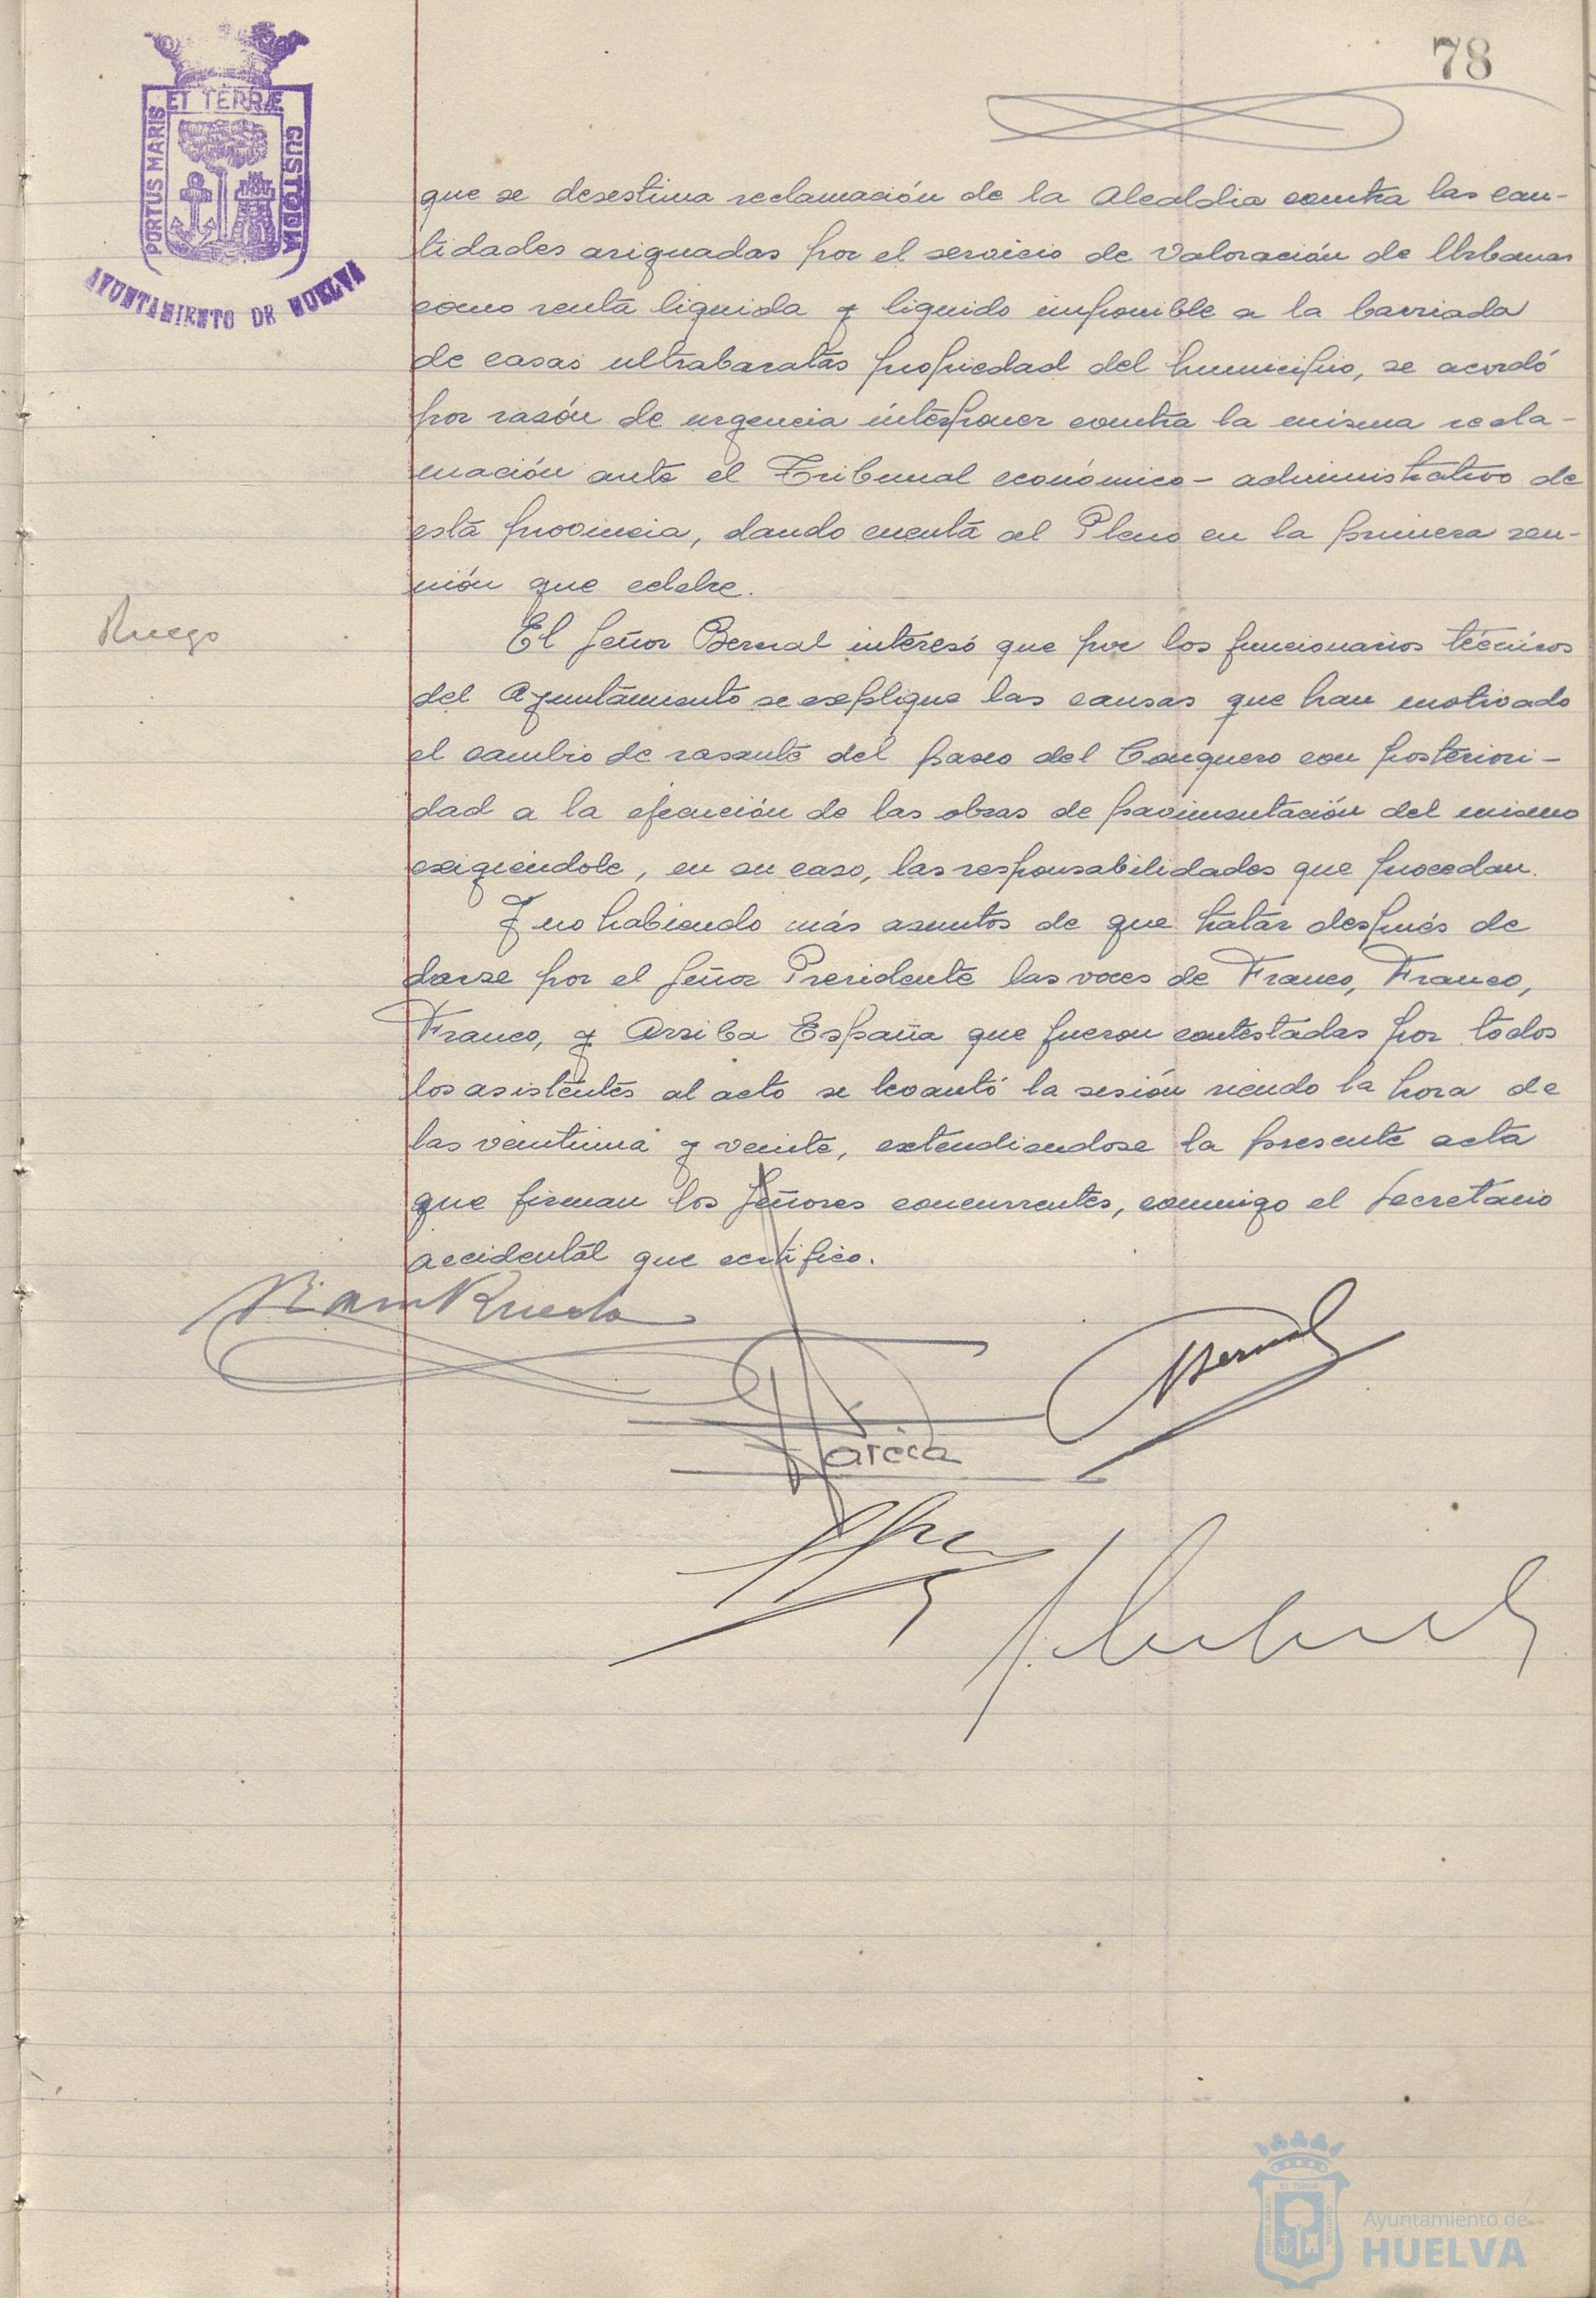 78
PORTUS MARIS ET TERRÆ CUSTODIA
AYUNTAMIENTO DE HUELVA
que se desestima reclamación de la Alcaldia contra las can-
tidades asignadas por el servicio de Valoración de Urbanas
como renta liquida y liquido imponible a la barriada
de casas ultrabaratas propiedad del Municipio, se acordó
por razón de urgencia interponer contra la misma recla-
mación ante el Tribunal económico-administrativo de
esta provincia, dando cuenta al Pleno en la primera reu-
nión que celebre.
Ruego
El Señor Bernal interesó que por los funcionarios técnicos
del Ayuntamiento se explique las causas que han motivado
el cambio de rasante del paseo del Conquero con posteriori-
dad a la ejecución de las obras de pavimentación del mismo
exigiendole, en su caso, las responsabilidades que procedan.
Y no habiendo más asuntos de que tratar después de
darse por el Señor Presidente las voces de Franco, Franco,
Franco, y Arriba España que fueron contestadas por todos
los asistentes al acto se levantó la sesión siendo la hora de
las veintiuna y veinte, extendiendose la presente acta
que firman los Señores concurrentes, conmigo el Secretario
accidental que certifico.
Rueda
Bernal
Garcia
Ayuntamiento de
HUELVA